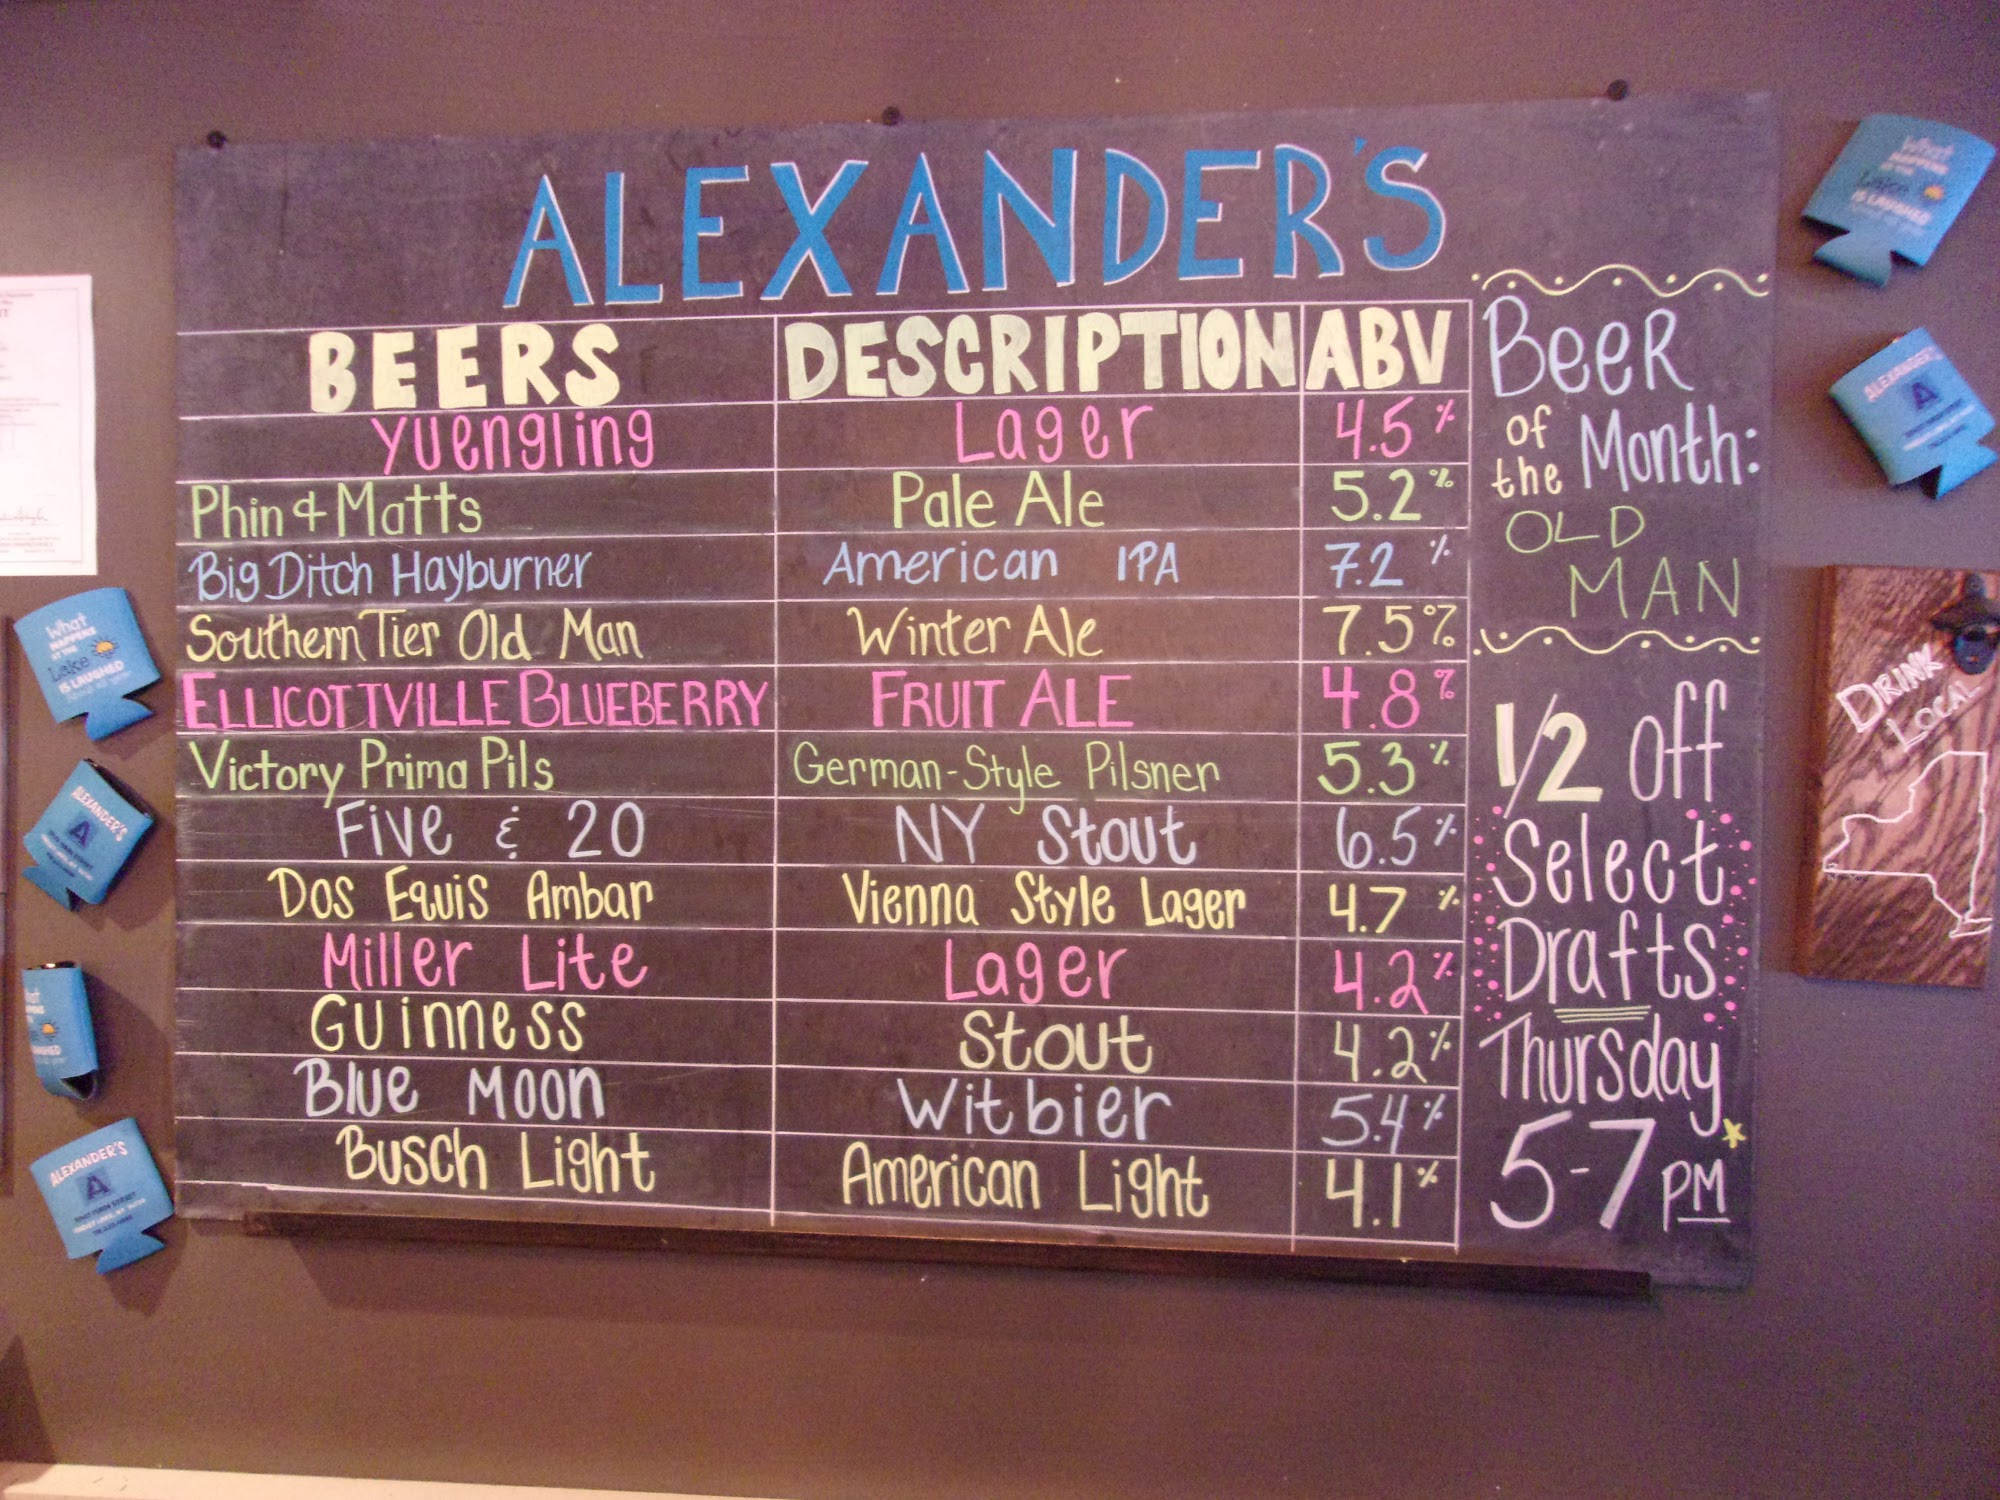 ALEXANDER'S
BEERS DESCRIPTION ABV
Yuengling Lager 4.5%
Phin & Matts Pale Ale 5.2%
Big Ditch Hayburner American IPA 7.2%
Southern Tier Old Man Winter Ale 7.5%
ELLICOTTVILLE BLUEBERRY FRUIT ALE 4.8%
Victory Prima Pils German-Style Pilsner 5.3%
Five & 20 NY Stout 6.5%
Dos Equis Ambar Vienna Style Lager 4.7%
Miller Lite Lager 4.2%
Guinness Stout 4.2%
Blue Moon Witbier 5.4%
Busch Light American Light 4.1%
Beer
of
the Month:
OLD
MAN
1/2 off
Select
Drafts
Thursday
5-7 PM
What
HAPPENS
AT THE
Lake
IS LAUGHED
ALEXANDER'S
A
ALEXANDER'S
A
What
HAPPENS
AT THE
Lake
IS LAUGHED
ALEXANDER'S
A
DRINK
LOCAL